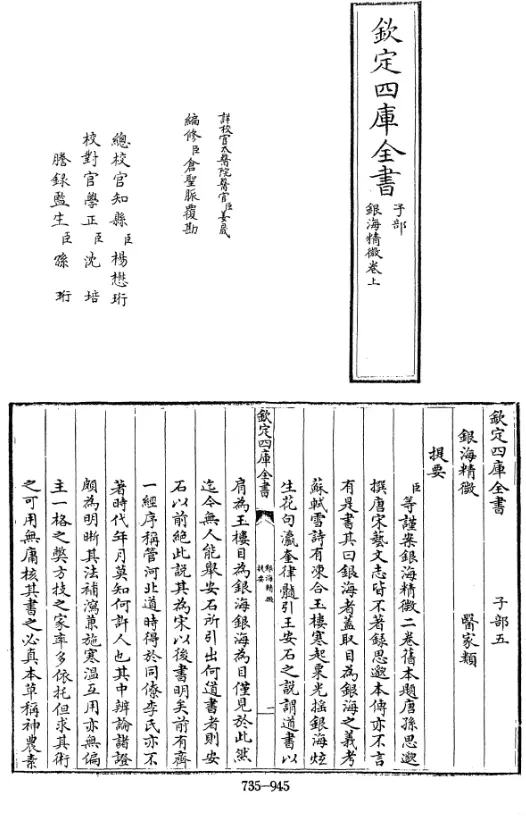 欽定四庫全書
子部
銀海精微卷上
詳校官太醫院醫官臣姜晟
編修臣倉聖脈覆勘
總校官知縣臣楊懋珩
校對官學正臣沈培
謄錄監生臣孫珩
欽定四庫全書 子部五
銀海精微 醫家類
提要
臣等謹案銀海精微二卷舊本題唐孫思邈
撰唐宋藝文志皆不著錄思邈本傳亦不言
有是書其曰銀海者葢取目為銀海之義考
蘇軾雪詩有凍合玉樓寒起粟光摇銀海炫
生花句瀛奎律髓引王安石之說謂道書以
欽定四庫全書
銀海精微
提要
一
肩為玉樓目為銀海銀海為目僅見於此然
迄今無人能舉安石所引出何道書者則安
石以前絶此說其為宋以後書明矣前有齊
一經序稱管河北道時得於同僚李氏亦不
著時代年月莫知何許人也其中辨論諸證
頗為明晰其法補瀉兼施寒温互用亦無偏
主一格之弊方技之家率多依托但求其術
之可用無庸核其書之必真本草稱神農素
735-945